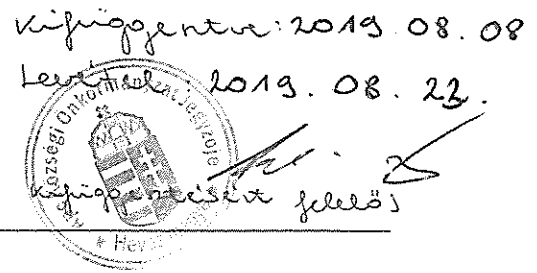 Kifüggesztve: 2019. 08. 08
Levétel: 2019. 08. 22.
Községi Önkormányzat Jegyzője
kifüggesztésért felelős
* Heves